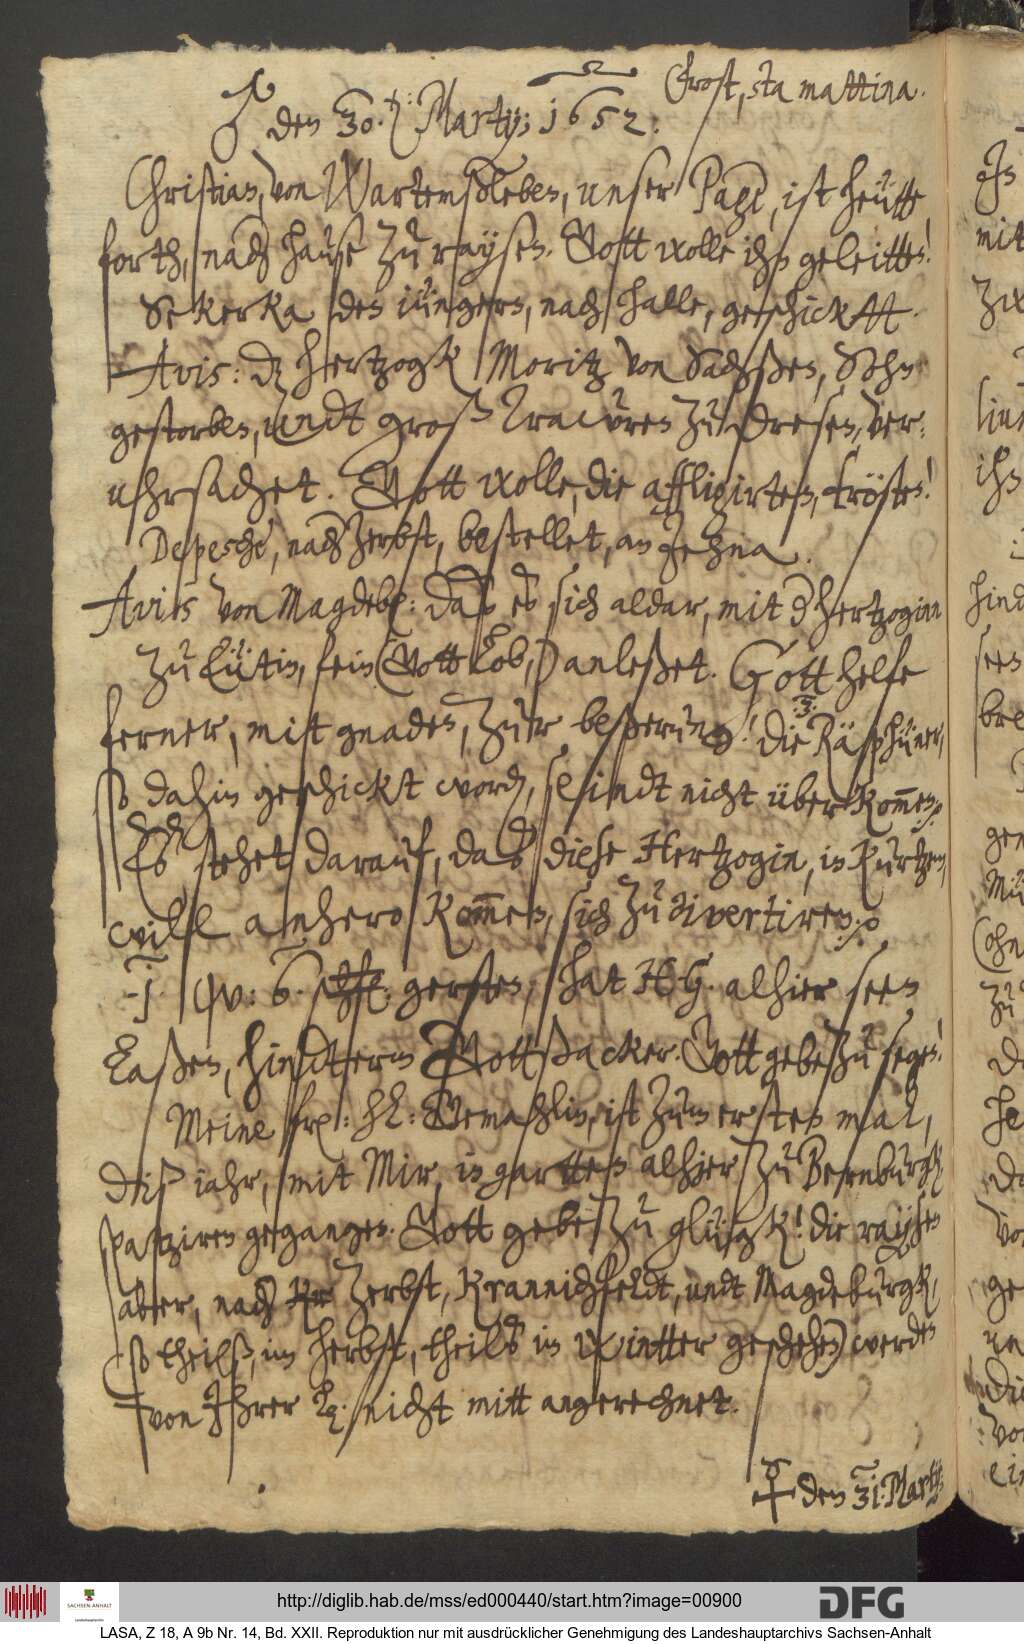 ♂ den 30.t: Martij; 1652.
Frost, sta mattina.
Christian, von Wartemßleben, unser Page, ist heütte
forth, nach hause zu raysen. Gott wolle ihn geleitten!
Sekerka den iüngern, nach Halle, geschicktt.
Avis: dz Hertzogk Moritz von Sachßen, Sohn
gestorben, undt groß trawren zu Dresen, ver-
uhrsachet. Gott wolle, die affligirten, trösten!
Depesche, nach Zerbst, bestellet, an Jehna.
Avis von Magdeb: daß es sich aldar, mit der Hertzoginn
zu Eütin, fein (Gott Lob,) anleßet. Gott helfe
ferner, mitt gnaden, zur beßerung! die 3. Räphüner,
so dahin geschickt word, seindt nicht überkommen
Es stehet darauf, daß diese Hertzogin, in kurtzem,
will anhero kommen, sich zu divertiren.
1 W: 6 gersten, hat HG. alhier seen
Laßen, hindterm Gottßacker. Gott gebe zu segen!
Meine fr: h L: Gemahlin, ist zum ersten mal,
diß iahr, mit Mir, in gartten alhier zu Bernburgk
spatziren gegangen. Gott gebe zu glügk! die raysen
aber, nach Zerbst, Krannichfeldt, undt Magdeburgk,
so theilß, im herbst, theils in wintter geschehen) werden
von Ihrer L. nicht mitt angerechnet.
♀ den 31. Martij
http://diglib.hab.de/mss/ed000440/start.htm?image=00900
SACHSEN-ANHALT
DFG
LASA, Z 18, A 9b Nr. 14, Bd. XXII. Reproduktion nur mit ausdrücklicher Genehmigung des Landeshauptarchivs Sachsen-Anhalt